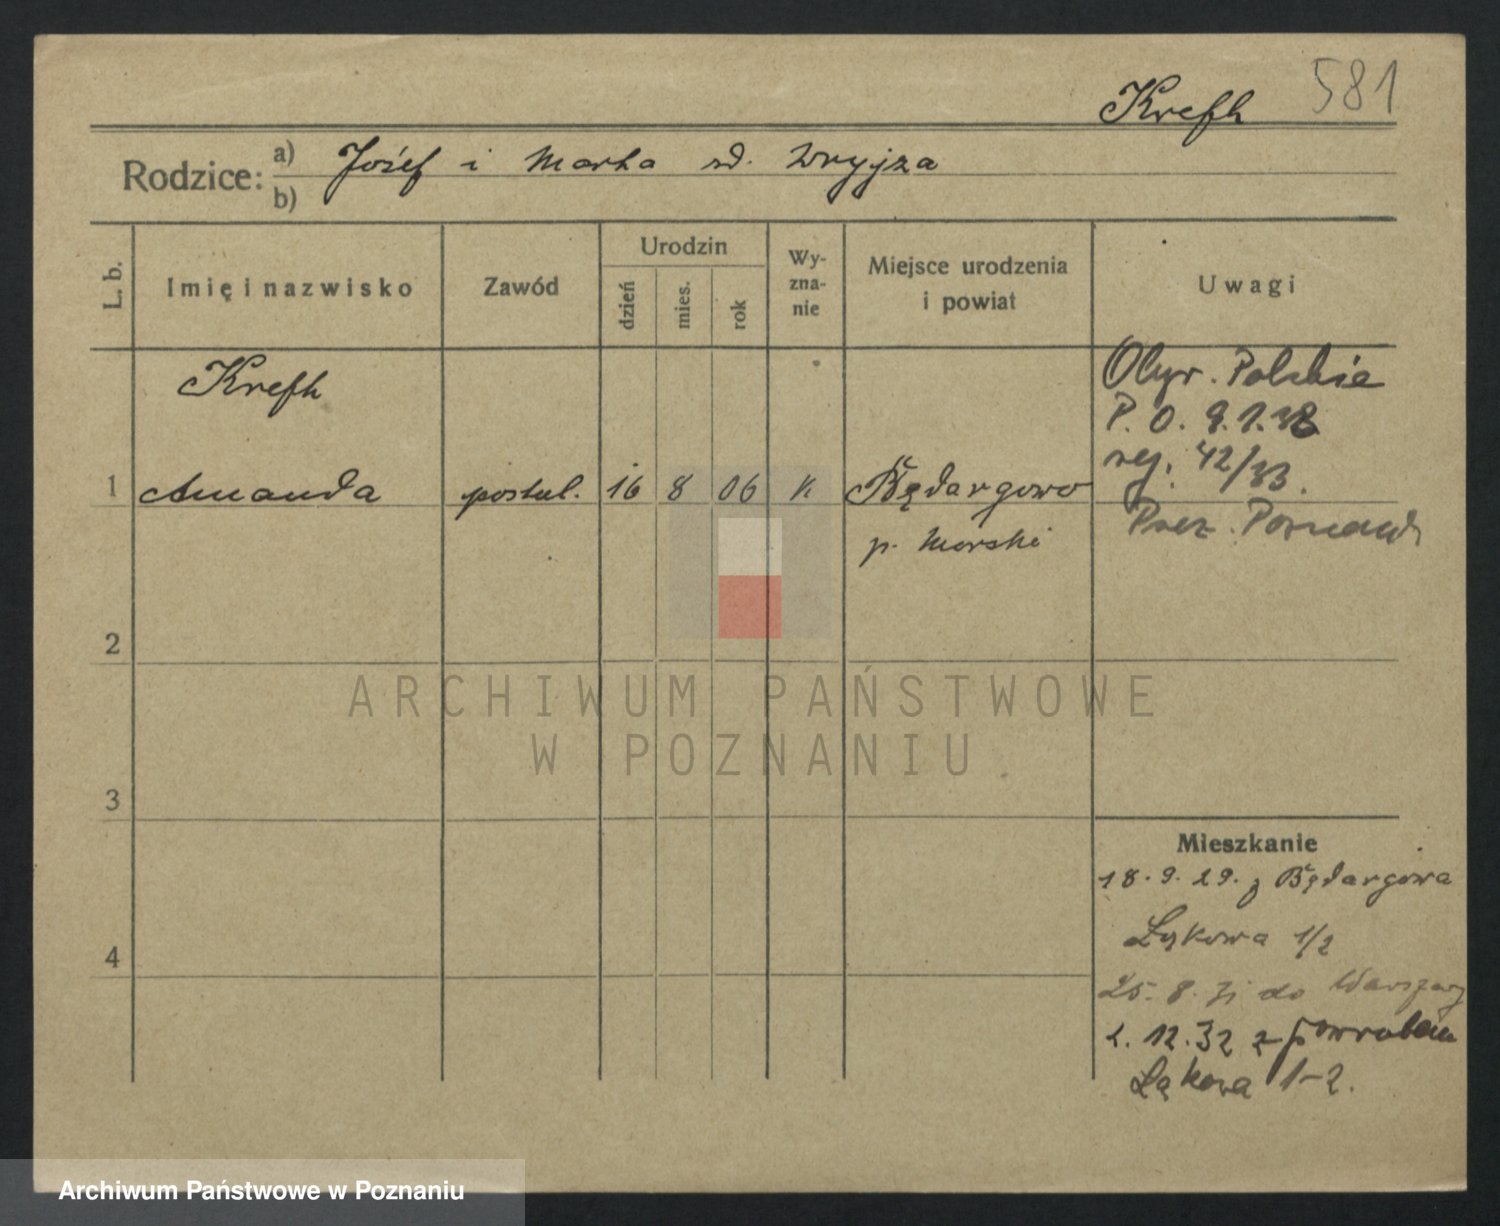 Krefft 581
Rodzice: a) Józef i Marta
b)
L. b. Imię i nazwisko Zawód Urodzin dzień mies. rok Wy-zna-nie Miejsce urodzenia i powiat Uwagi
Krefft
Obyw. Polskie
P. O. 9.1.
rej. 42/33.
1 Amanda postul. 16 8 06 k Będargowo
p. Morski
Prez. Poznań
2
3
4
ARCHIWUM PAŃSTWOWE
W POZNANIU
Mieszkanie
18.9.29. z Będargowa
Łąkowa 1/2
25.8.31 do Warszawy
2.12.32 z powrotem
Łąkowa 1-2.
Archiwum Państwowe w Poznaniu